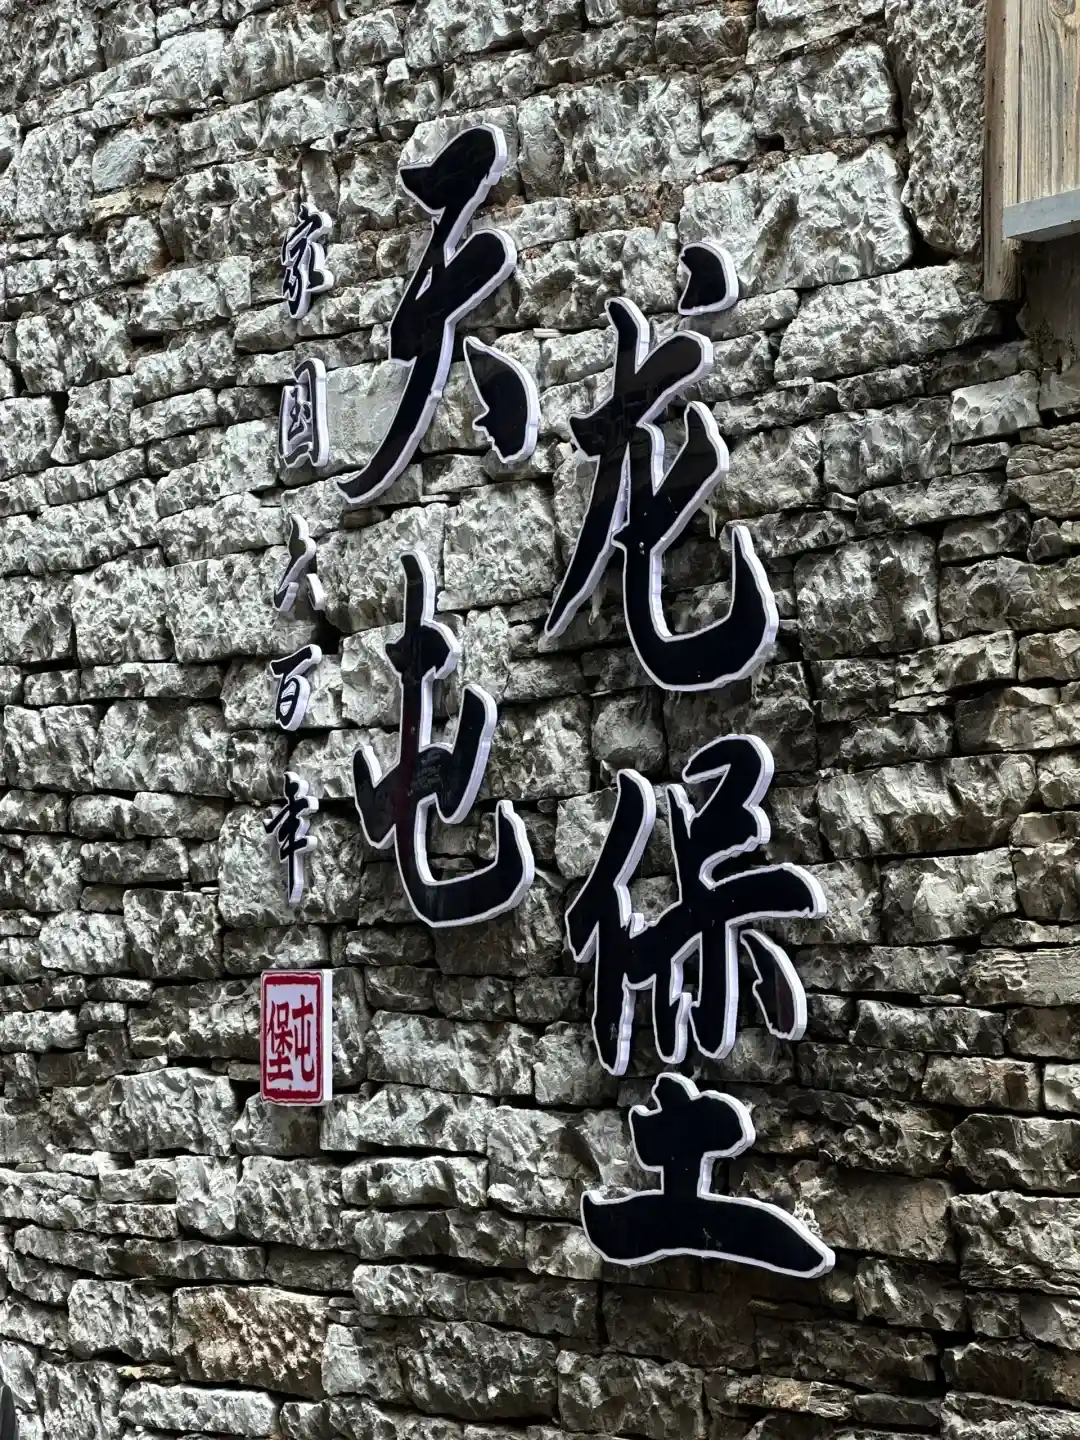 天龙屯堡
家国六百年
屯堡